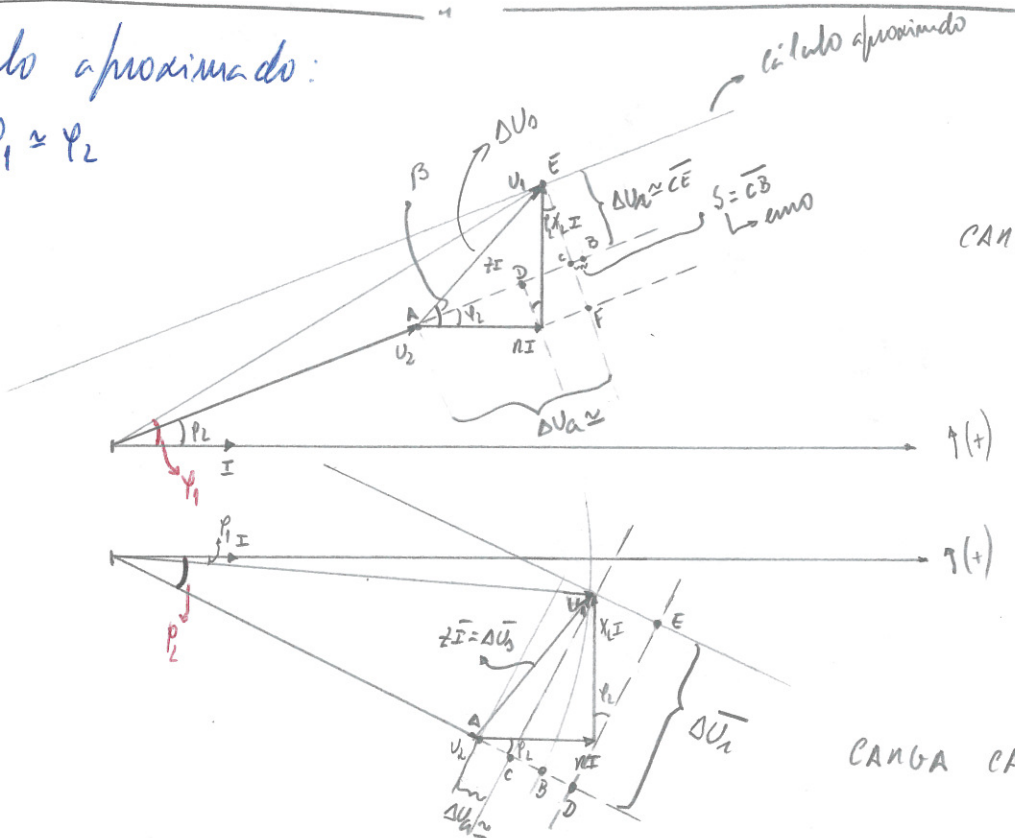 lo aproximado:
φ₁ ≃ φ₂
cálculo aproximado
ΔUs
β
E
U₁
ΔUr ≃ C̅E̅
S = C̅B̅
↳ erro
X_L I
zI
D
C
B
CAR
A
φ₂
F
U₂
rI
ΔUa ≃
φ₂
I
φ₁
(+)
φ₁
I
(+)
φ₂
U₁
X_L I
E
zI̅ = ΔU̅s̅
φ₂
ΔU̅r̅
A
U₂
φ₂
rI
C
B
D
ΔUa ≃
CARGA CA